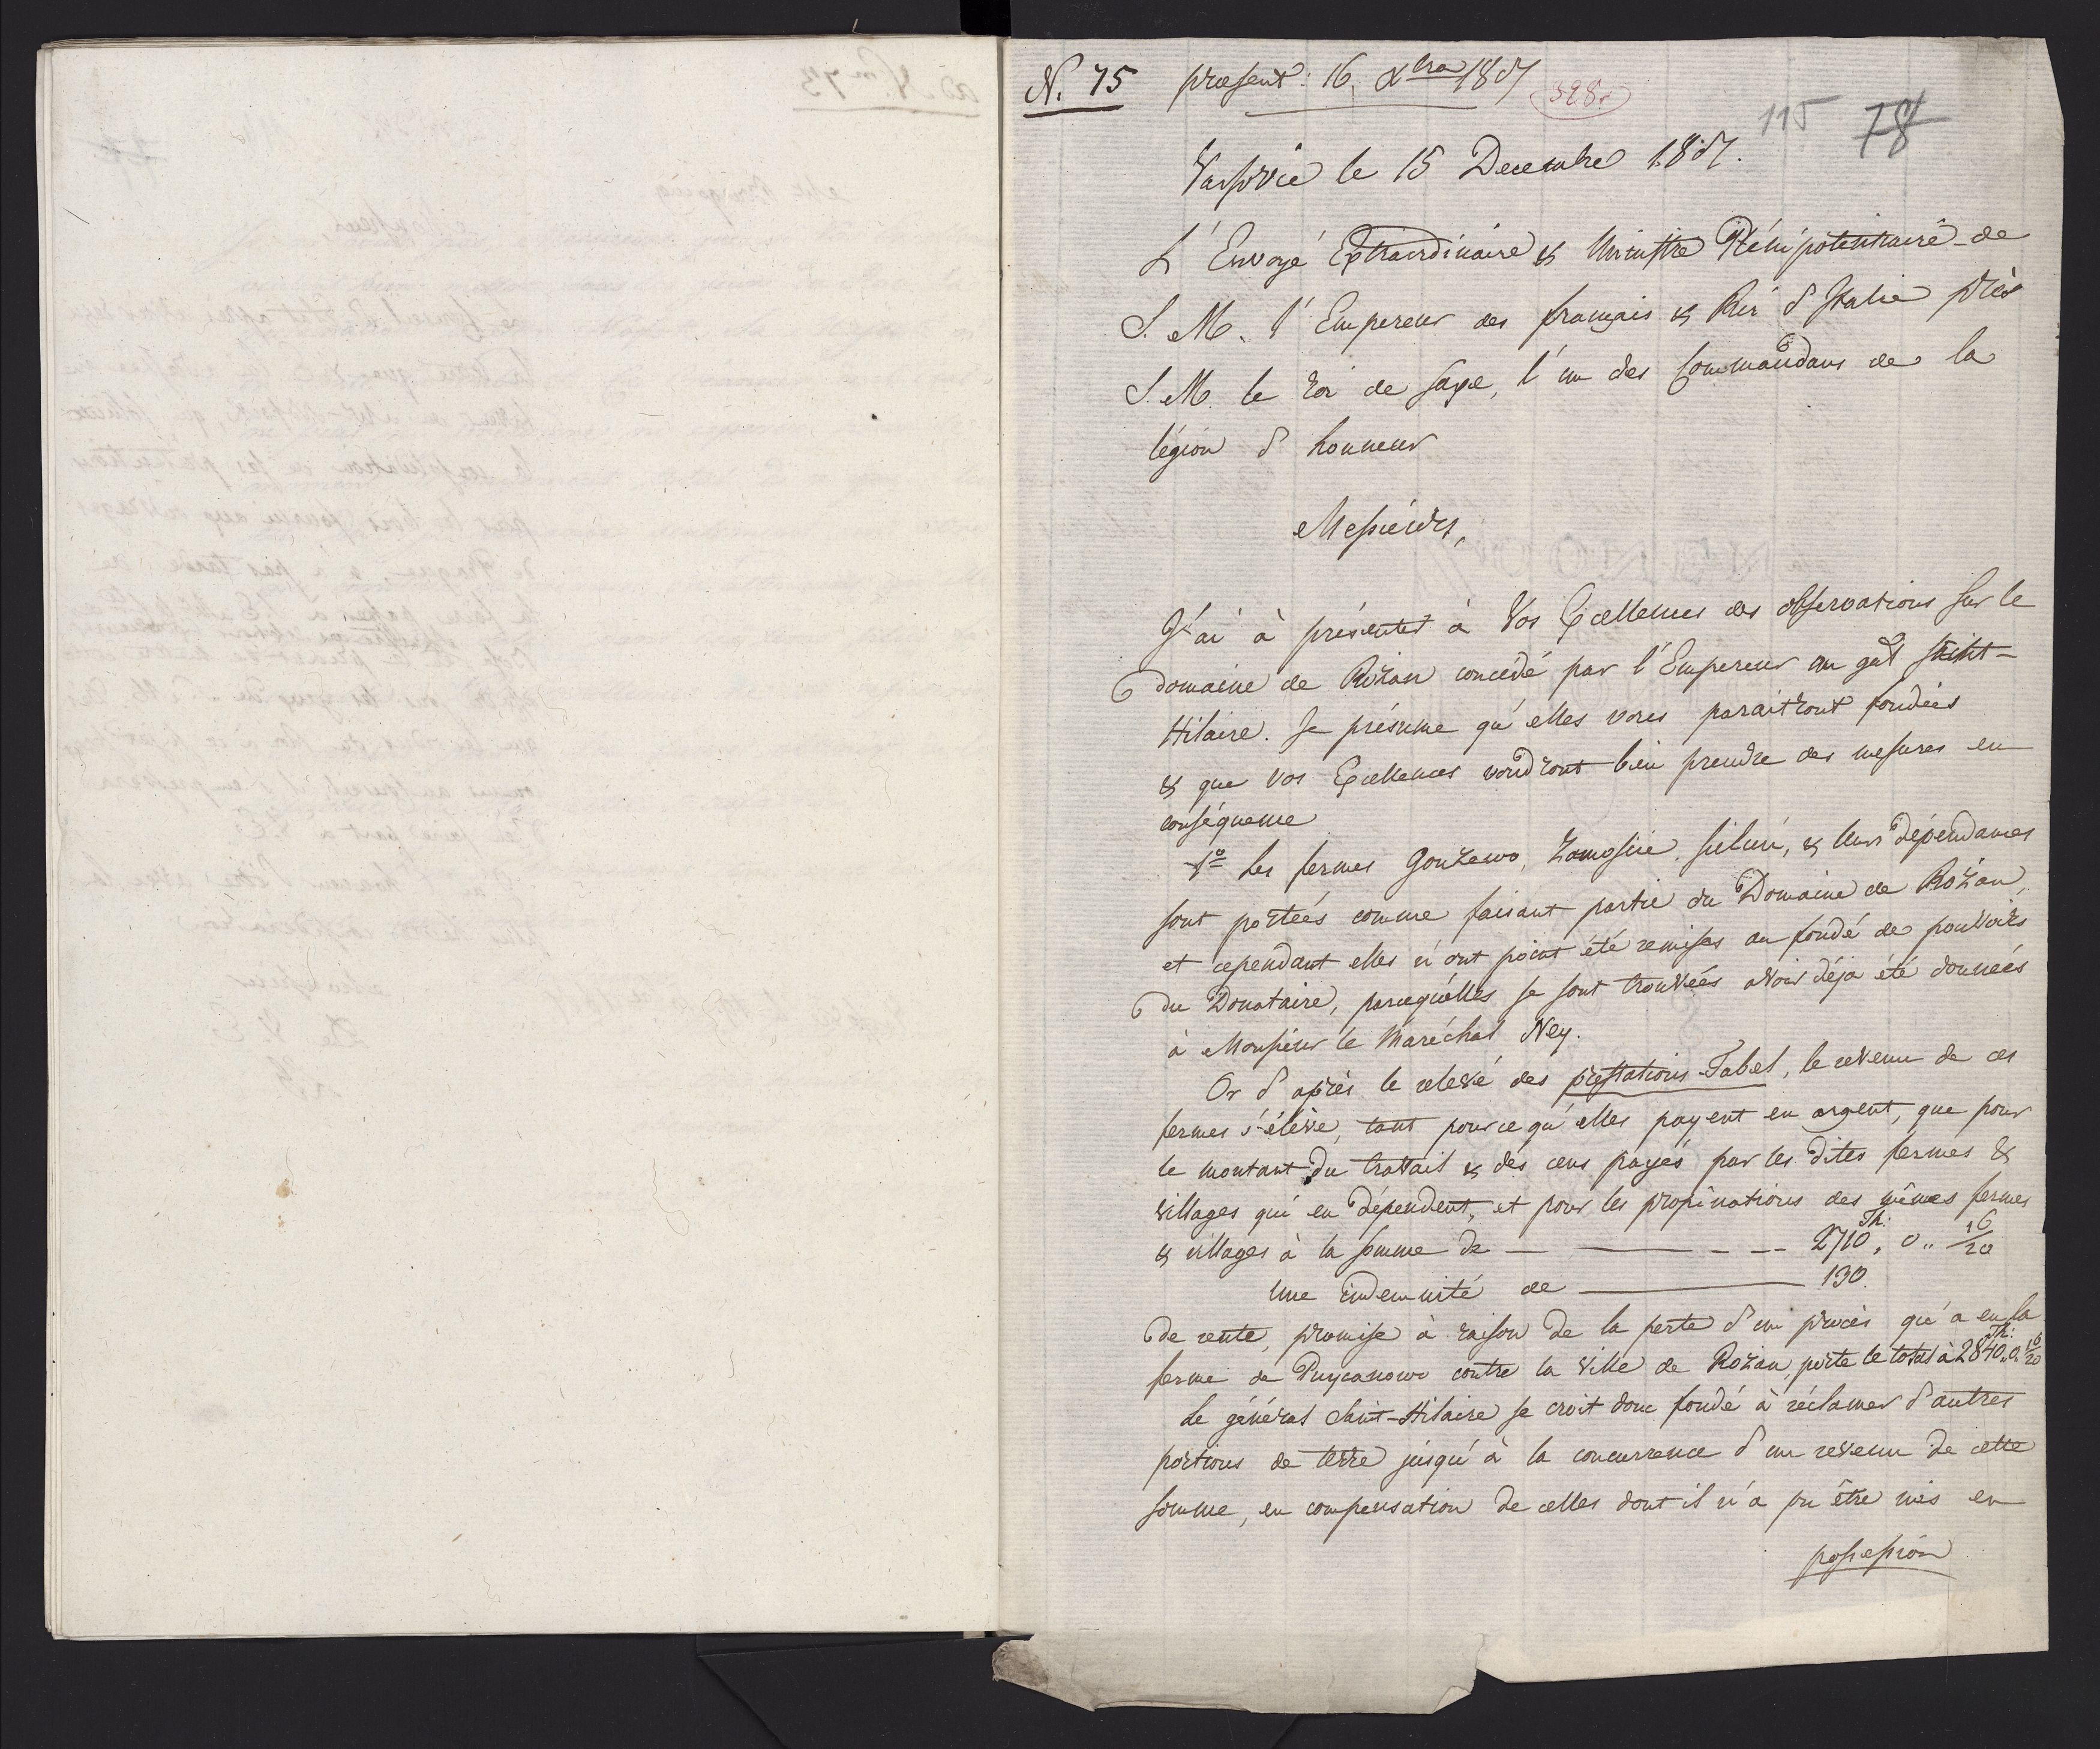 N. 75 præsent: 16. Xbra 1807
328.
115 78
Varsovie le 15 Decembre 1807.
L'Envoyé Extraordinaire & Ministre Plénipotentiaire de
S. M. l'Empereur des français & Roi d'Italie près
S. M. le roi de Saxe, l'un des Commandans de la
légion d'honneur
Messieurs,
J'ai à présenter à Vos Excellences des observations sur le
domaine de Rozan concédé par l'Empereur au gal Saint-
Hilaire. Je présume qu'elles vous paraitront fondées
& que Vos Excellences voudront bien prendre des mesures en
conséquence
1o Les fermes Gonzewo, Zamoscie & leurs dépendances
sont portées comme faisant partie du Domaine de Rozan,
et cependant elles n'ont point été remises au fondé de pouvoirs
du Donataire, parcequ'elles se sont trouvées avoir déja été données
à Monsieur le Maréchal Ney.
Or d'après le relevé des prestations-Tabel, le revenu de ces
fermes s'élève, tant pour ce qu'elles payent en argent, que pour
le montant du travail & des cens payés par les dites fermes &
villages qui en dépendent, et pour les propinations des mêmes fermes
& villages à la somme de — — — — 2710 Th: , 0 „ 16/20
une indemnité de — 130
de rente, promise à raison de la perte d'un procès qu'a eu la
ferme de contre la ville de Rozan, porte le total à 2840 Th: „ 0 „ 16/20
Le général Saint-Hilaire se croit donc fondé à réclamer d'autres
portions de terre jusqu'à la concurrence d'un revenu de cette
somme, en compensation de celles dont il n'a pu être mis en
possession